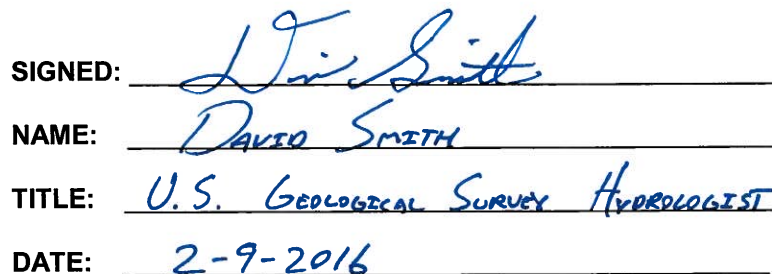 SIGNED: David Smith
NAME: DAVID SMITH
TITLE: U.S. GEOLOGICAL SURVEY HYDROLOGIST
DATE: 2-9-2016